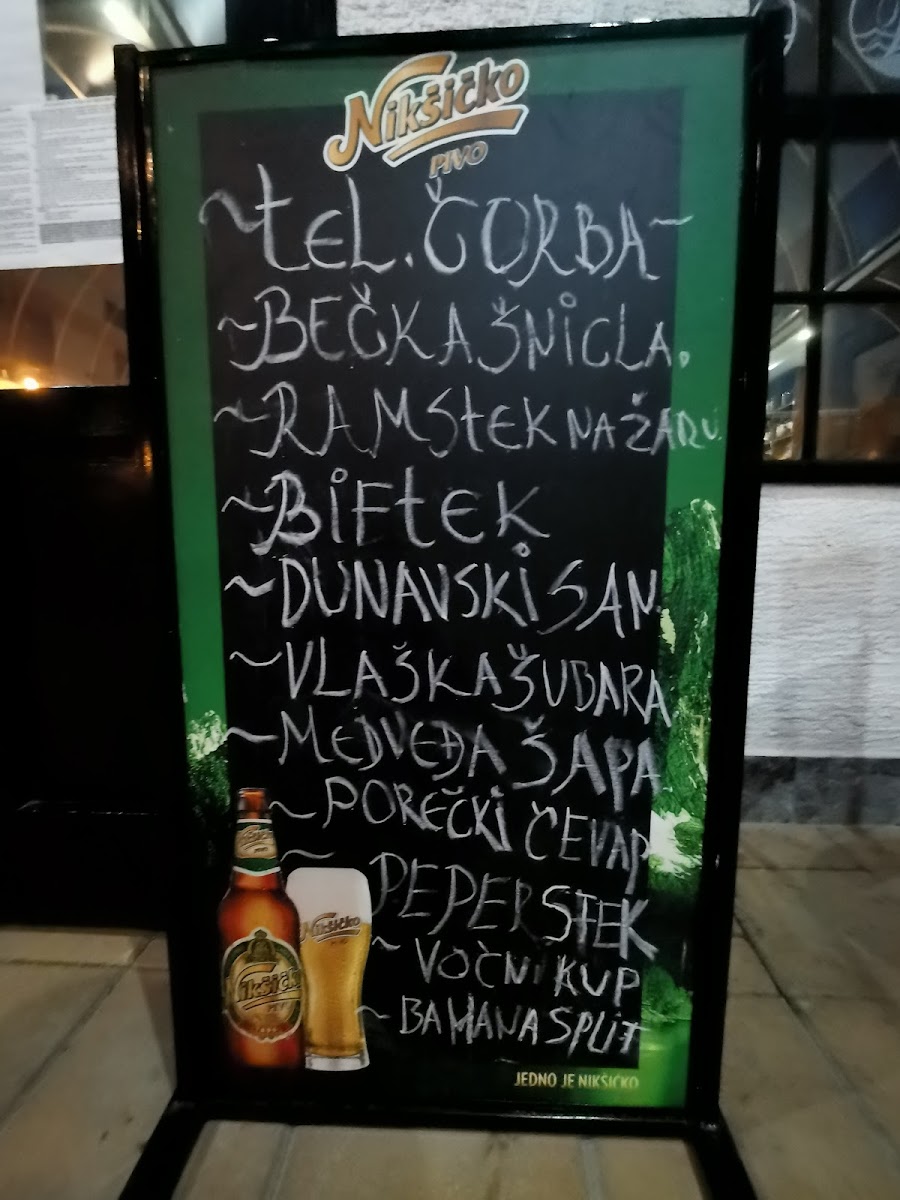 Nikšičko
PIVO
~tEL. ČORBA~
~BEČKA ŠNiCLA.
~RAMStEK NA ŽARU
~BiFtEK
~DUNAVSKi SAN
~VLAŠKA ŠUBARA
~MEDVEĐA ŠAPA
~POREČKi ČEVAP
~PEPER STEK
~VOČNi KUP
~BANANA SPLiT
Nikšičko
PIVO
Nikšičko
JEDNO JE NIKŠIČKO